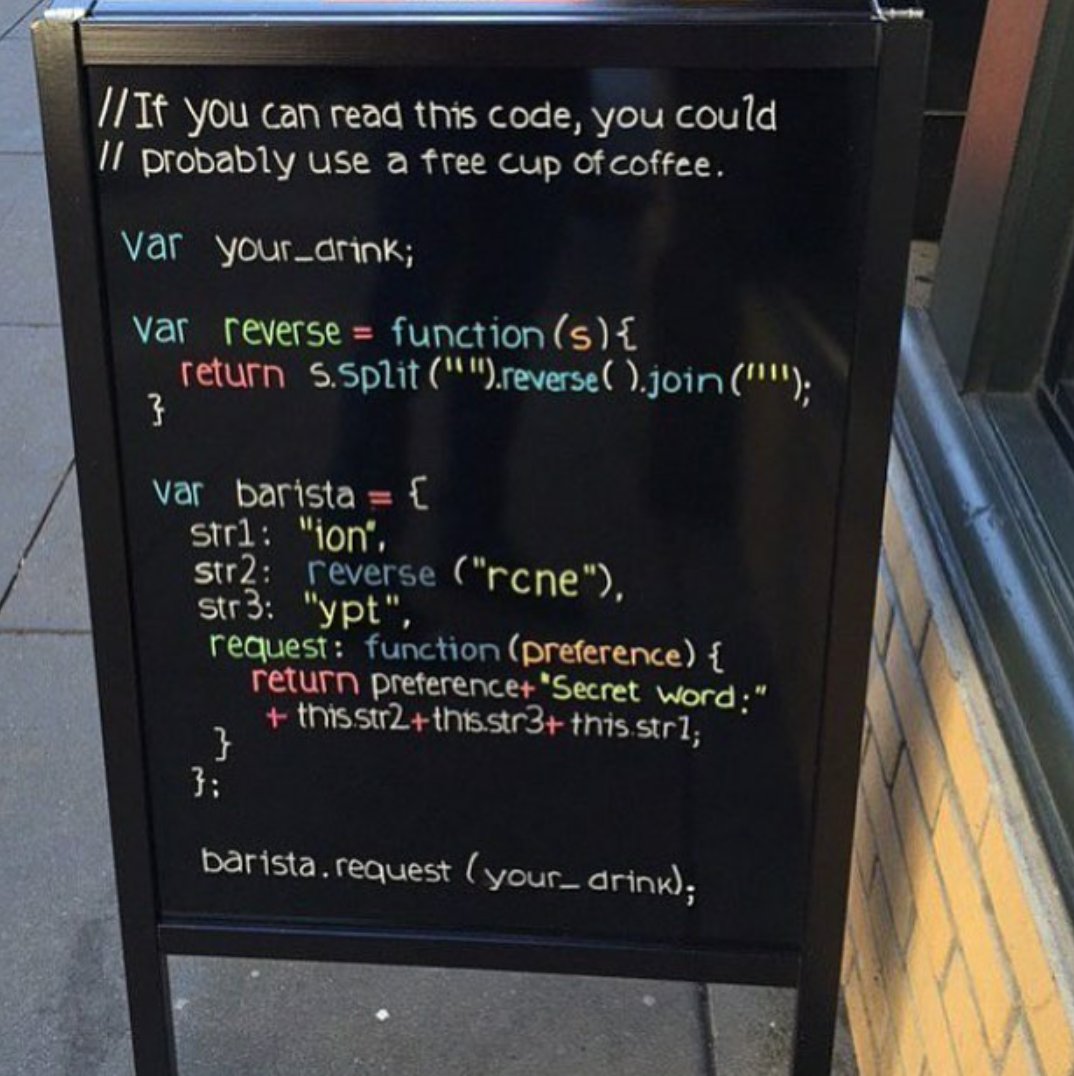 //If you can read this code, you could
// probably use a free cup of coffee.
var your_drink;
var reverse = function(s){
return s.split("").reverse().join("");
}
var barista = {
str1: "ion",
str2: reverse ("rcne"),
str3: "ypt",
request: function(preference) {
return preference+"Secret word:"
+ this.str2+this.str3+this.str1;
}
};
barista.request (your_drink);